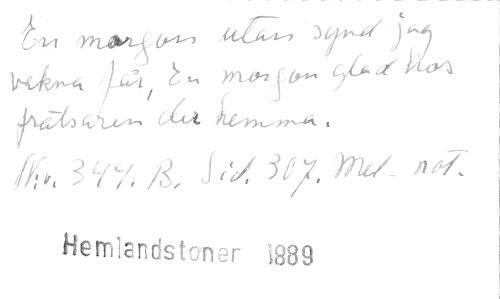 En morgon utan synd jag
vakna får, En morgon glad hos
frälsaren der hemma.
N:o. 344. B. Sid. 307. Mel. not.
Hemlandstoner 1889